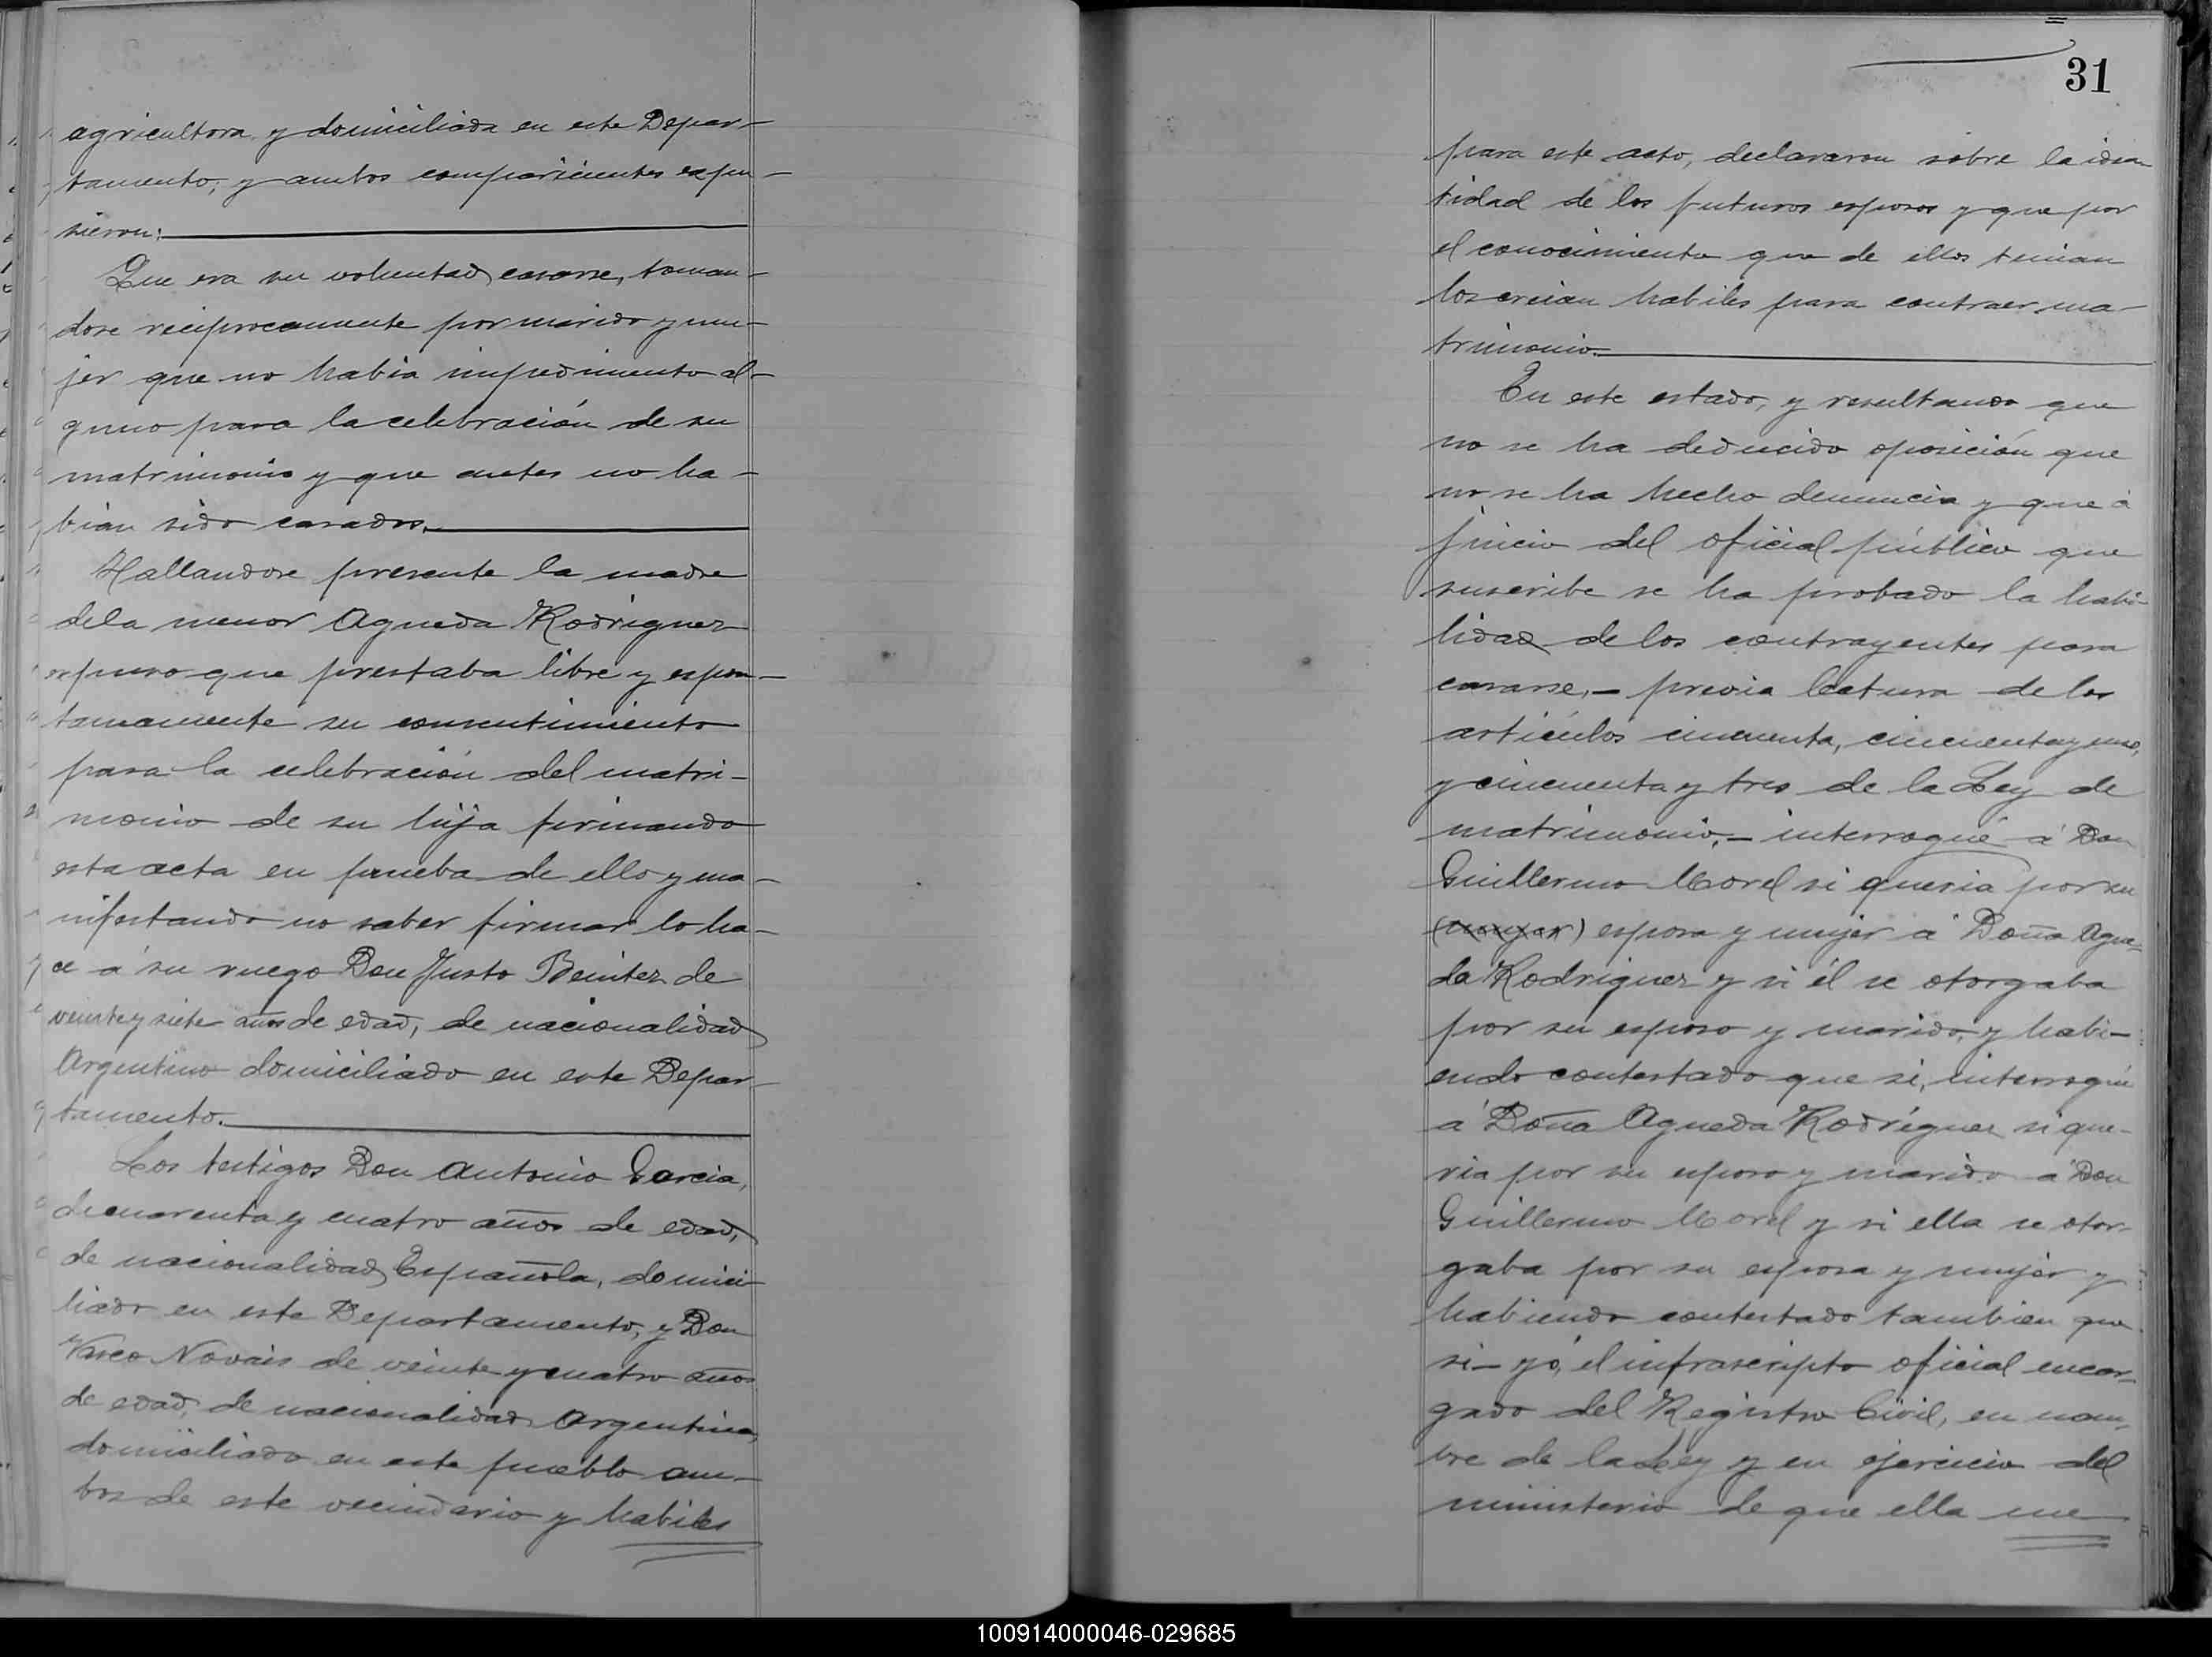 agricultora y domiciliada en este Depar-
tamento; y ambos comparicientes expu-
sieron:
Que era su voluntad casarse, toman-
dose reciprocamente por marido y mu-
jer que no habia impedimento al-
guno para la celebración de su
matrimonio y que antes no ha-
bian sido casados.
Hallandose presente la madre
dela menor Agueda Rodriguez
expuso que prestaba libre y espon-
taneamente su consentimiento
para la celebración del matri-
monio de su hija firmando
esta acta en prueba de ello y ma-
nifestando no saber firmar lo ha-
ce á su ruego Don Justo Benitez de
veinte y siete años de edad, de nacionalidad
Argentino domiciliado en este Depar-
tamento.
Los testigos Don Antonio Garcia,
de cuarenta y cuatro años de edad,
de nacionalidad Española, domici-
liado en este Departamento, y Don
Vasco Novais de veinte y cuatro años
de edad, de nacionalidad Argentina,
domiciliado en este pueblo am-
bos de este vecindario y habiles
31
para este acto, declararon sobre la iden
tidad de los futuros esposos y que por
el conocimiento que de ellos tenian
los creian habiles para contraer ma-
trimonio.
En este estado, y resultando que
no se ha deducido oposición que
no se ha hecho denuncia y que á
juicio del oficial público que
suscribe se ha probado la habi-
lidad de los contrayentes para
casarse, - previa lectura de los
articulos cincuenta, cincuenta y uno,
y cincuenta y tres de la Ley de
matrimonio, - interrogué á Don
Guillermo Morel si queria por su
(mujer) esposa y mujer á Doña Ague-
da Rodriguez y si él se otorgaba
por su esposo y marido, y habi-
endo contestado que si, interrogué
á Doña Agueda Rodriguez si que-
ria por su esposo y marido á Don
Guillermo Morel y si ella se otor-
gaba por su esposa y mujer y
habiendo contestado tambien que
si - yó, el infrascripto oficial encar-
gado del Registro Civil, en nom-
bre de la Ley y en ejercicio del
ministerio de que ella me
100914000046-029685